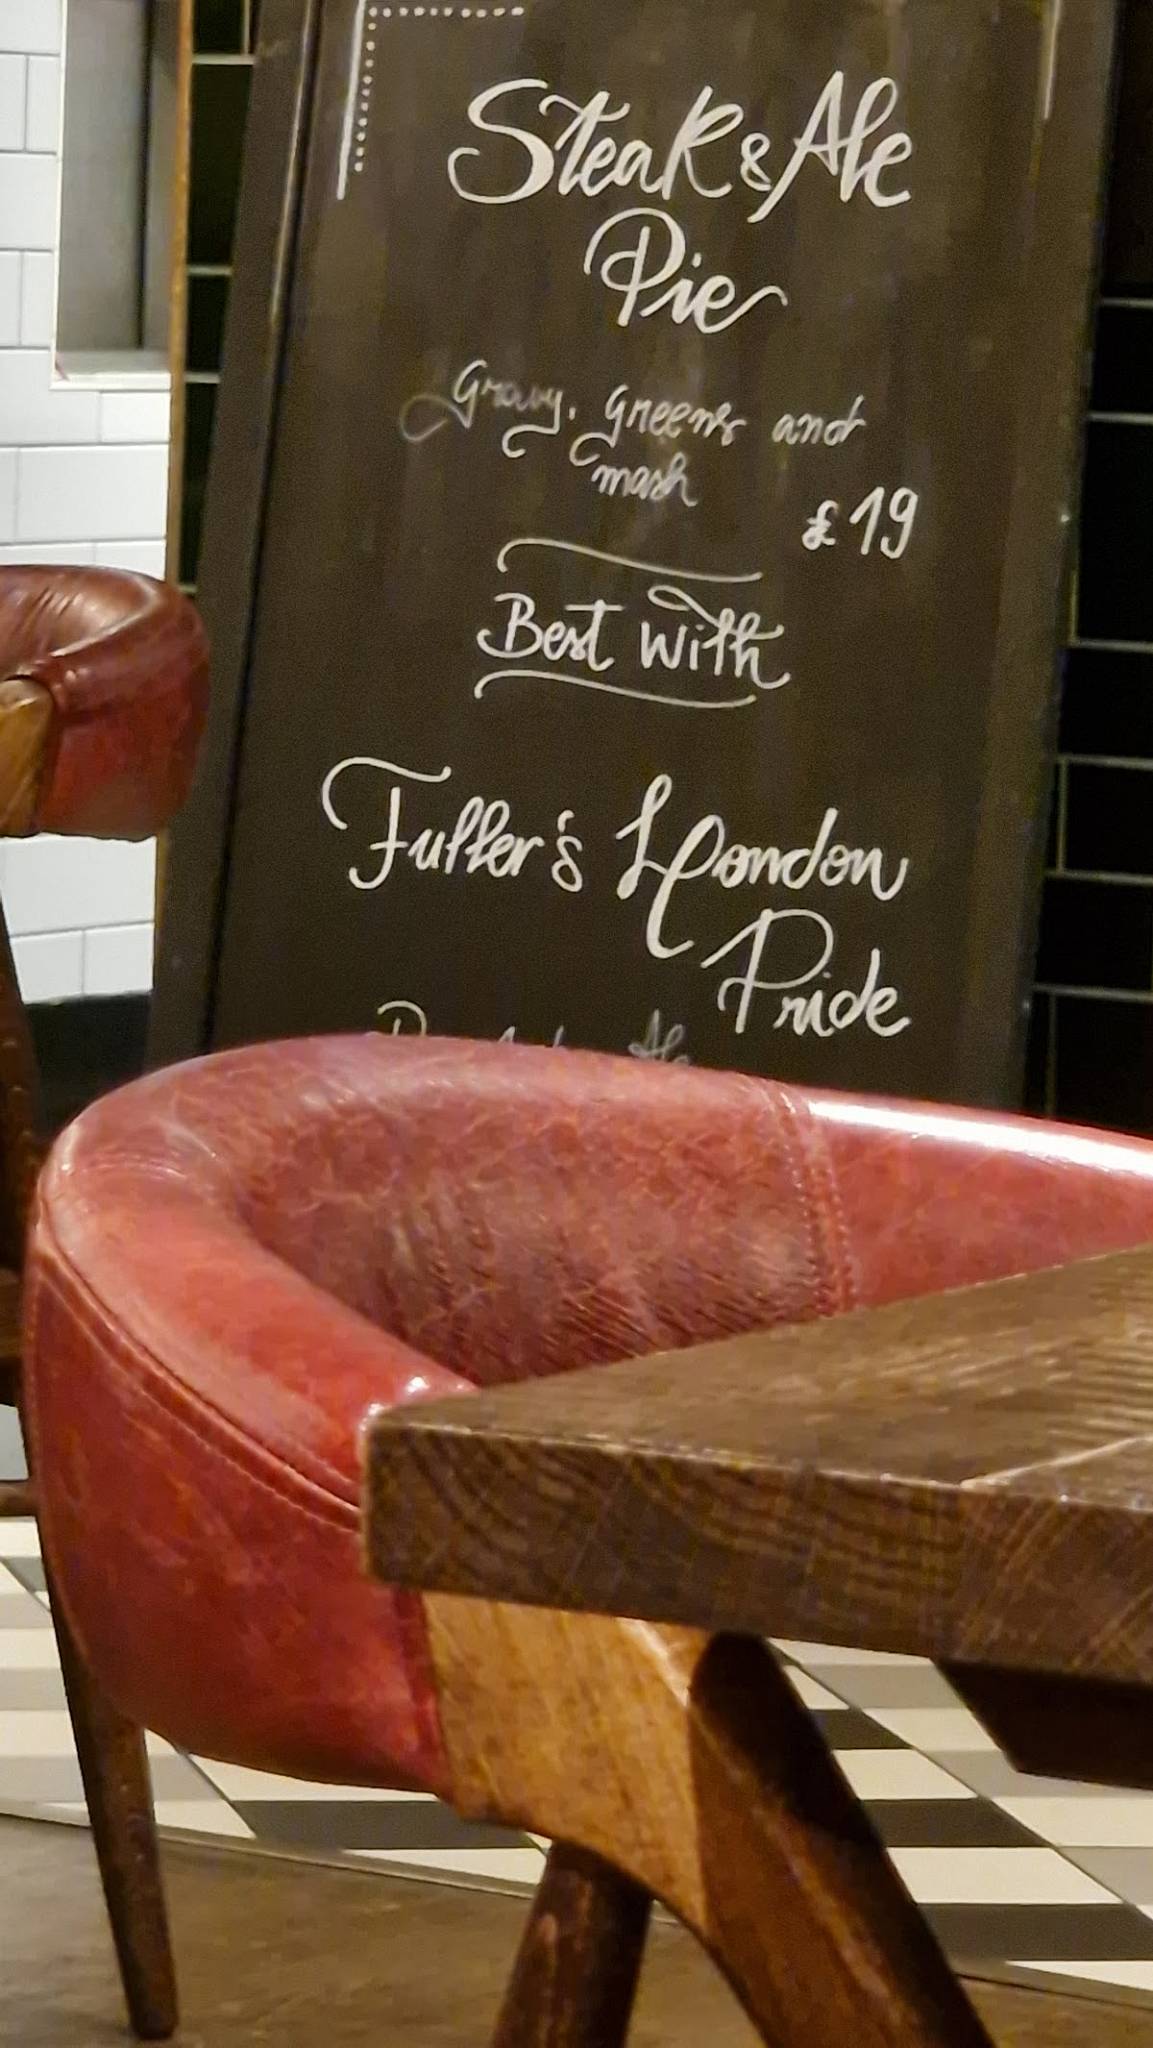 Steak & Ale
Pie
Gravy, Greens and
mash
£19
Best with
Fuller's London
Pride
Ale